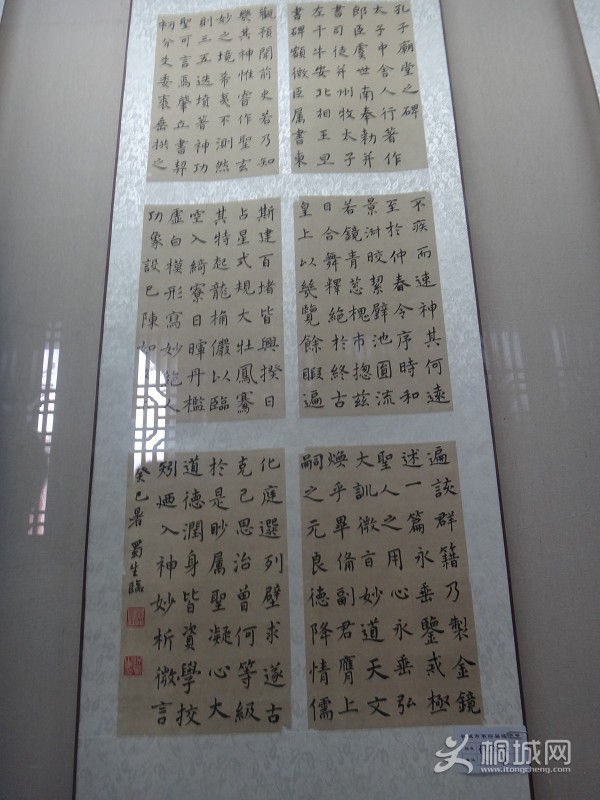 孔子廟堂之碑
太子中舍人行著作
郎臣虞世南奉勅并
書司徒并州牧太子
左千牛安北相王旦
書碑額微臣属書東
觀預聞前史若乃知
幾其神惟睿作聖玄
妙之境希夷不測然
則三五迭墳著神功
聖可言焉肇立書契
初分爻委裘垂拱之
不疾而速神其何遠
至於仲春令序時和
景淑皎絜璧池圓流
若鏡青葱槐市揔茲
日合舞釋絕於終古
皇上以幾覽餘暇遍
斯建百堵皆興揆日
占星式規大壯鳳鶱
其特起龍桷儼以臨
空入綺寮日暉丹檻
虛白模形寫妙絕人
功象設已陳如
遍該群籍乃製金鏡
述一篇永垂鑒戒極
聖人之用心永垂弘
大訓微旨妙道天文
煥乎畢備副君膺上
嗣之元良德降情儒
化庭選列璧求遂古
克己思治曾何等級
於是眇属聖凝心大
道德潤身皆資學校
矧迺入神妙析微言
癸巳暑 蜀生臨
桐城网
www.itongcheng.com